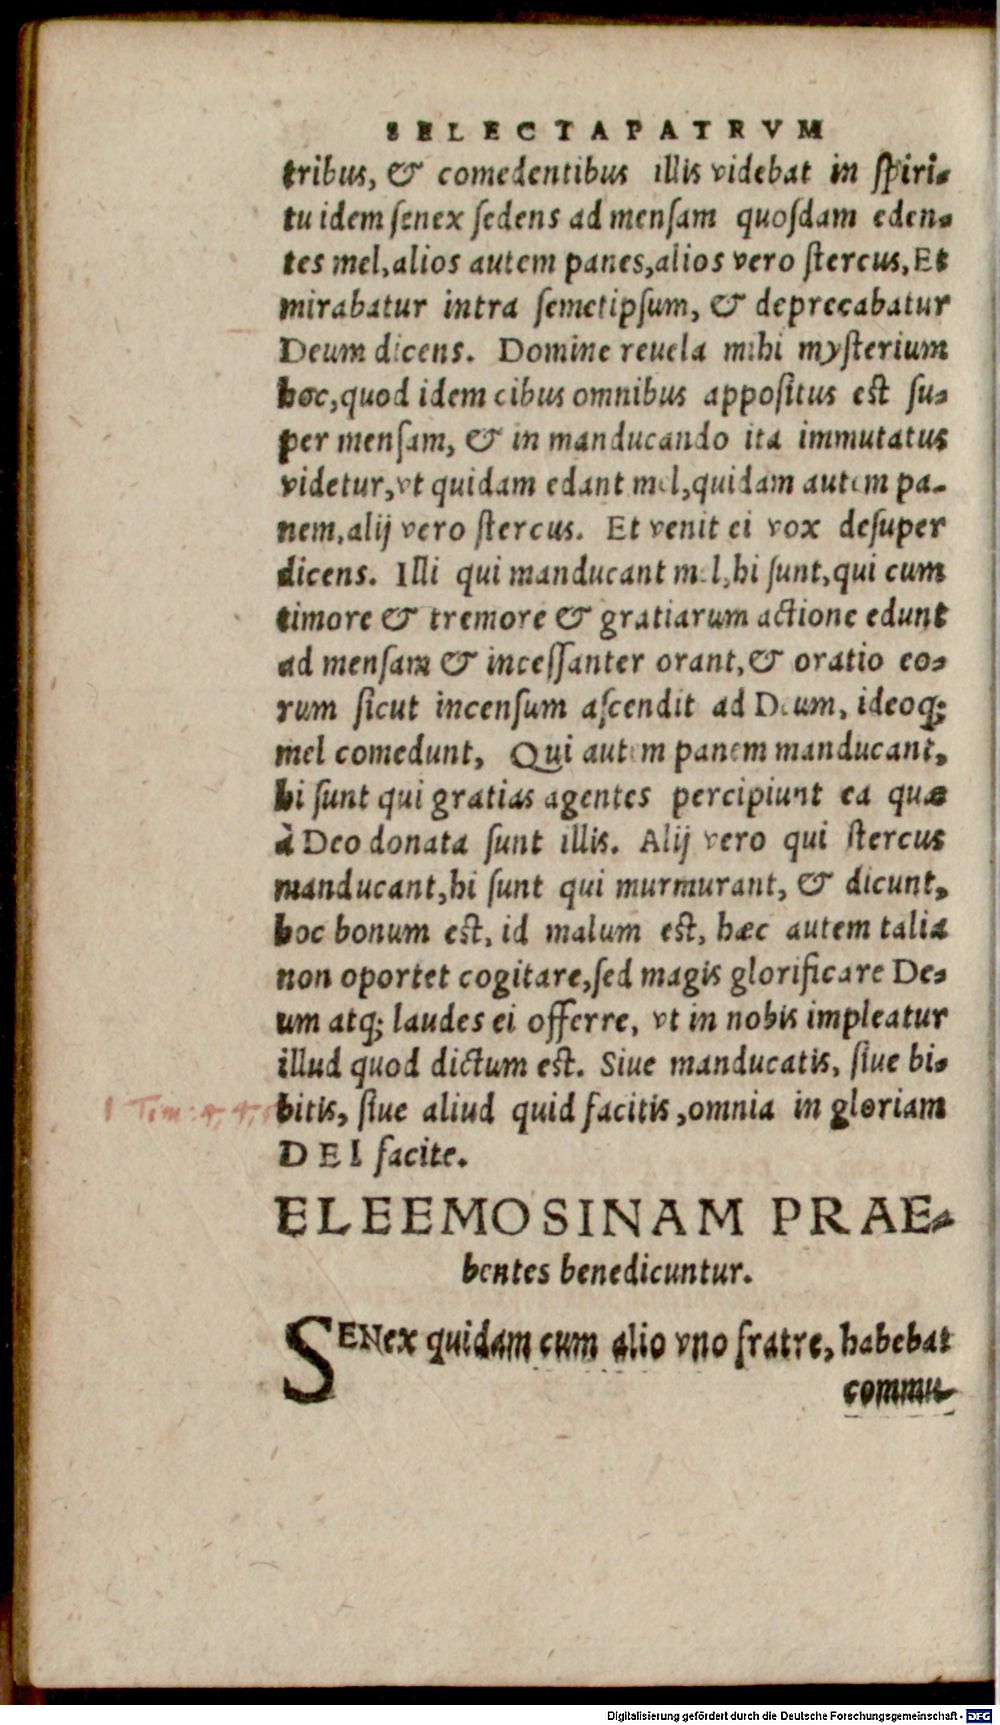 SELECTA PATRVM
tribus, & comedentibus illis videbat in spiri-
tu idem senex sedens ad mensam quosdam eden-
tes mel, alios autem panes, alios vero stercus, Et
mirabatur intra semetipsum, & deprecabatur
Deum dicens. Domine reuela mihi mysterium
hoc, quod idem cibus omnibus appositus est su-
per mensam, & in manducando ita immutatus
videtur, vt quidam edant mel, quidam autem pa-
nem, alij vero stercus. Et venit ei vox desuper
dicens. Illi qui manducant mel, hi sunt, qui cum
timore & tremore & gratiarum actione edunt
ad mensam & incessanter orant, & oratio eo-
rum sicut incensum ascendit ad Deum, ideoq;
mel comedunt, Qui autem panem manducant,
hi sunt qui gratias agentes percipiunt ea quæ
à Deo donata sunt illis. Alij vero qui stercus
manducant, hi sunt qui murmurant, & dicunt,
hoc bonum est, id malum est, hæc autem talia
non oportet cogitare, sed magis glorificare De-
um atq; laudes ei offerre, vt in nobis impleatur
illud quod dictum est. Siue manducatis, siue bi-
1 Tim: 4, 4,
bitis, siue aliud quid facitis, omnia in gloriam
DEI facite.
ELEEMOSINAM PRAE-
bentes benedicuntur.
SENex quidam cum alio vno fratre, habebat
commu-
Digitalisierung gefördert durch die Deutsche Forschungsgemeinschaft - DFG